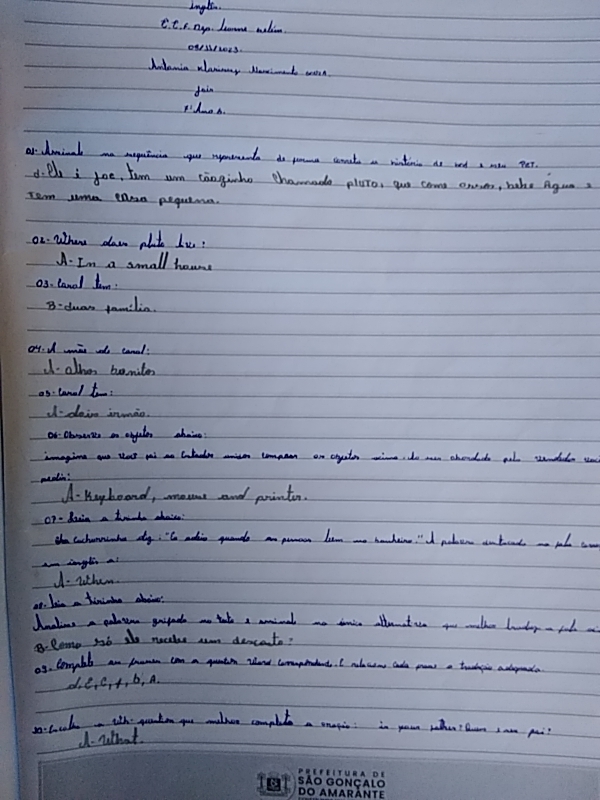 Inglês.
09/11/2023.
Antonia Nascimento
7º Ano A.
01- Assinale na sequência que representa de forma correta a história de e seu PET.
d- Ele é joe, tem um cãozinho chamado pluto, que come arros, bebe Água e
Tem uma casa pequena.
02- Where does pluto live:
A- In a small house
03- Carol tem:
B- duas família.
04- A mãe de carol:
A- olhos bonitos
05- Carol tem:
A- dois irmão.
06- Observe os objetos abaixo:
imagine que você foi ao Estados unidos comprar os objetos acima. Ao ser abordado pelo vendedor você
pediu:
A- Keyboard, mouse and printer.
07- Leia a tirinha abaixo:
"Eu odeio quando as pessoas no banheiro." A palavra
em inglês é:
A- When.
08- Leia a tirinha abaixo:
Analise a palavra grifada no texto e assinale a única alternativa que melhor
B- Como só ele recebe um desconto?
09- Complete as frases com a question Word correspondente. E relacione cada frase a tradução adequada.
d, E, C, f, b, A.
10- Escolha a Wh- question que melhor completa a oração: is your father? Quem é seu pai?
A- What.
PREFEITURA DE
SÃO GONÇALO
DO AMARANTE